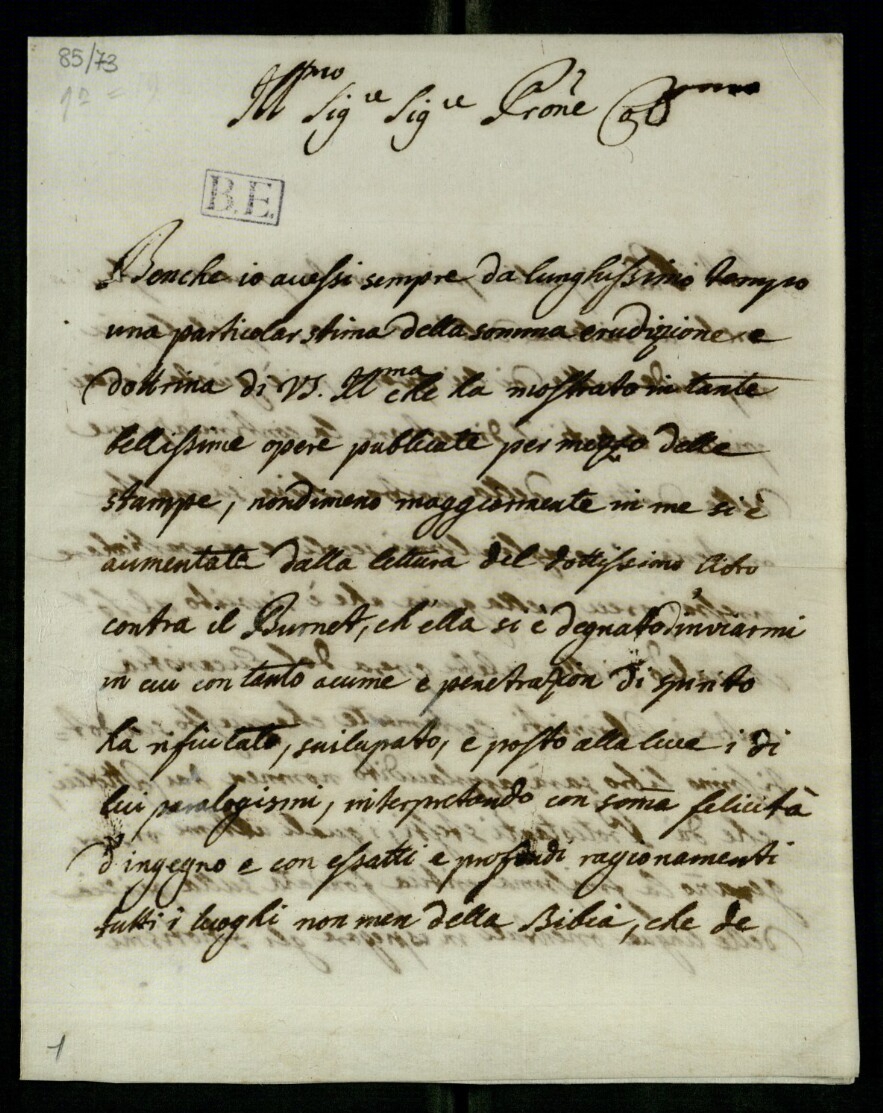 85/73
Ill.mo Sig.re Sig.re P.rone Oss.mo
B.E.
Benche io avessi sempre da lunghissimo tempo
una particolar stima della somma erudizione e
dottrina di VS. Ill.ma che ha mostrato in tante
bellissime opere publicate per mezzo delle
stampe, nondimeno maggiormente in me si è
aumentata dalla lettura del dottissimo libro
contra il Burnet, ch'ella si e degnato d'inviarmi
in cui con tanto acume e penetrazion di spirito
ha rifiutato, suilupato, e posto alla luce i di
lui paralogismi, interpretando con soma felicità
d'ingegno e con essatti e profondi ragionamenti
tutti i luoghi non men della Bibia, che de
1